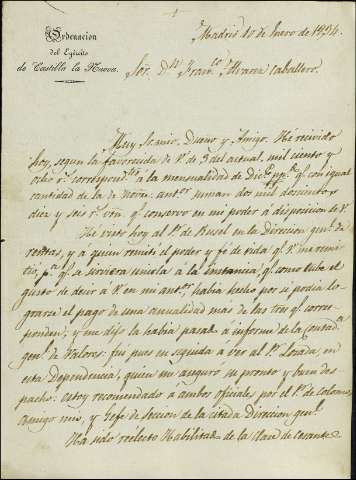 Ordenacion
del Egército
de Castilla la Nueva.
Madrid 10 de Enero de 1834.
Sor. Dn. Franco. Alvarez Caballero.
Muy S. mio, Dueño y Amigo. Hé recivido
hoy, segun la favorecida de V. de 3 del actual, mil ciento y
ocho rs. correspondtes. à la mensualidad de Dice. pp. y con igual
cantidad de la de Nove. antr. suman dos mil doscientos
diez y seis rs. von. qe. conservo en mi poder à disposicion de V.
Hé visto hoy al Sr. de en la Direccion genl. de
rentas, y á quien remití el poder y fé de vida qe. V. me remi-
tió, pa. qe. se sirviera unirla á la instancia qe. como tube el
gusto de decir á V. en mi antr. habia hecho por si podia lo-
grarse el pago de una anualidad mas de las tres qe. corres-
ponden; y me dijo la habia pasado à informe de la Contada.
genl. de Valores: fui pues en seguida a ver al Sr. Lozada, en
esta Dependencia, quien me aseguró su pronto y buen des-
pacho: estoy recomendado á ambos oficiales por el Sr. de
amigo mio, y Gefe de Seccion de la citada Direccion genl.
Ha sido reelecto Habilitado de la clase de Cesantes